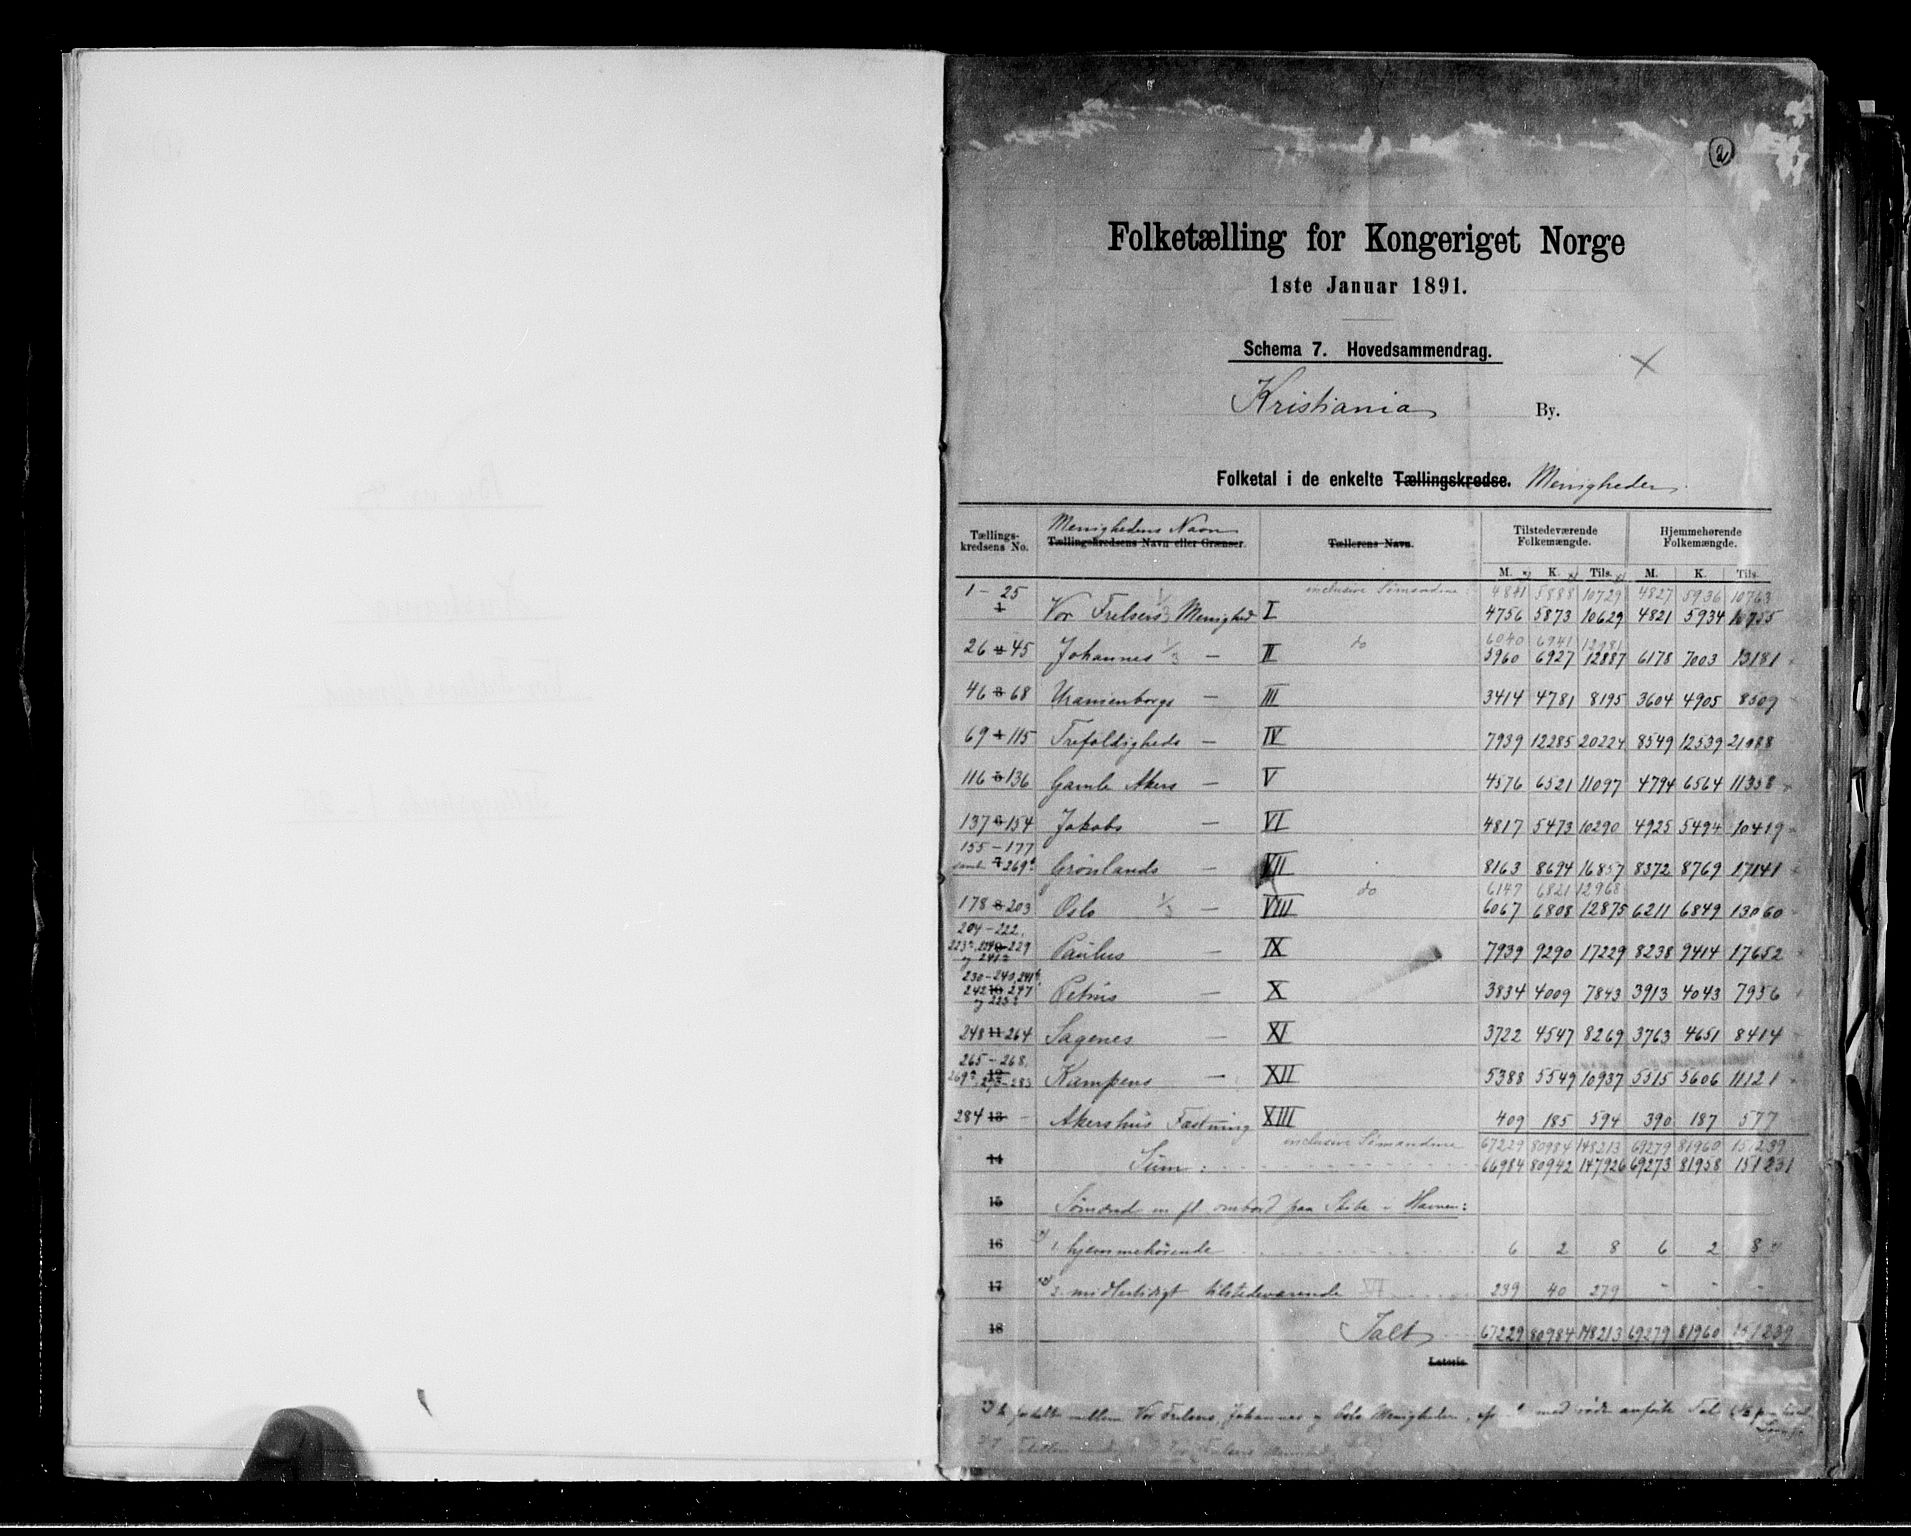 2
Folketælling for Kongeriget Norge
1ste Januar 1891.
Schema 7. Hovedsammendrag.
Kristiania By.
Folketal i de enkelte Tællingskredse. Menigheder.
Tællingskredsens No. Menighedens Navn Tællingskredsens Navn eller Grænser. Tællerens Navn. Tilstedeværende Folkemængde. Hjemmehørende Folkemængde.
M. K. Tils. M. K. Tils.
inclusive Sømændene: 4841 5888 10729 4827 5936 10763
1 - 25 1 Vor Frelsers 1/3 Menighed I 4756 5873 10629 4821 5934 10755
do 6040 6941 12981
26 2 45 Johannes 1/3 — II 5960 6927 12887 6178 7003 13181
46 3 68 Uranienborgs — III 3414 4781 8195 3604 4905 8509
69 4 115 Trefoldigheds — IV 7939 12285 20224 8549 12539 21088
116 5 136 Gamle Akers — V 4576 6521 11097 4794 6564 11358
137 6 154 Jakobs — VI 4817 5473 10290 4925 5494 10419
155 - 177
samt 7 269b Grønlands — VII 8163 8694 16857 8372 8769 17141
do 6147 6821 12968
178 8 203 Oslo 1/3 — VIII 6067 6808 12875 6211 6849 13060
204 - 222,
Paulus — IX 7939 9290 17229 8238 9414 17652
230 - 240, 241b
242 10 247 Petrus — X 3834 4009 7843 3913 4043 7956
248 11 264 Sagenes — XI 3722 4547 8269 3763 4651 8414
265 - 268,
269a, 12 270 - 283 Kampens — XII 5388 5549 10937 5515 5606 11121
284 13 - Akershus Fæstning XIII 409 185 594 390 187 577
inclusive Sømændene 67229 80984 148213 69279 81960 151239
14 Sum: 66984 80942 147926 69273 81958 151231
15 Sømænd m fl ombord paa Skibe i Havnen:
16 1. hjemmehørende 6 2 8 6 2 8
17 2. midlertidigt tilstedeværende VII 239 40 279 - - -
18 Ialt 67229 80984 148213 69279 81960 151239
Lateris.
fordelte mellem Vor Frelsers, Johannes og Oslo Menigheder, med røde anførte Tal
Vor Frelsers Menighed